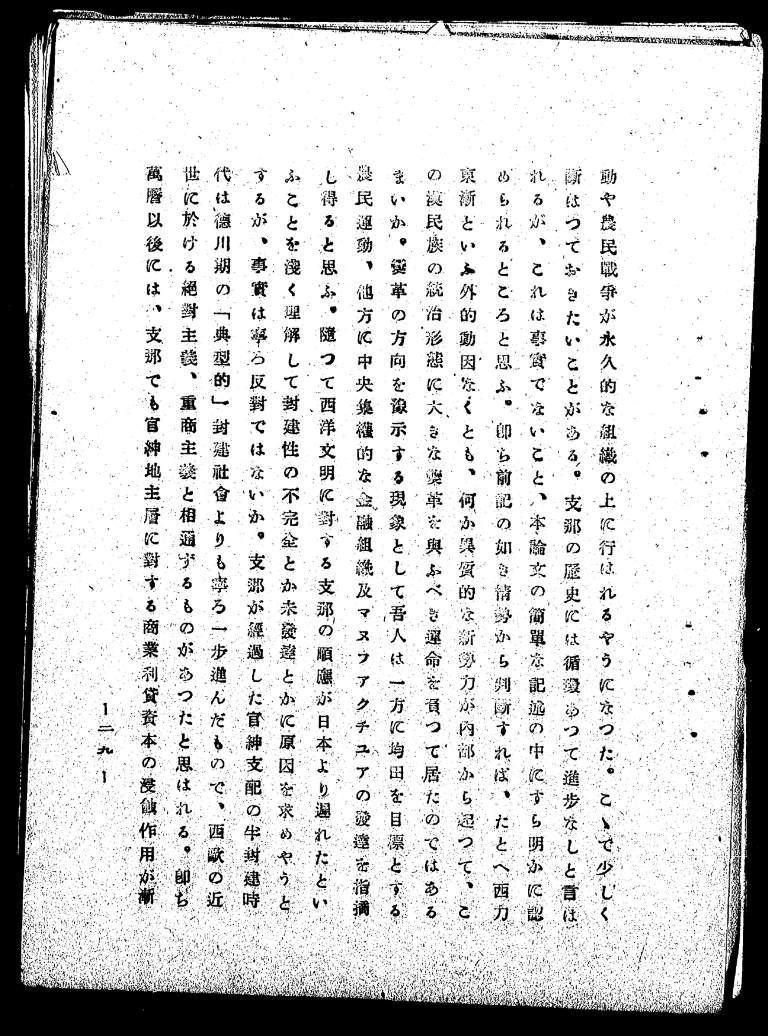 動や農民戰爭が永久的な組織の上に行はれるやうになつた。こゝで少しく
斷はつておきたいことがある。支那の歷史には循環あつて進步なしと言は
れるが、これは事實でないこと、本論文の簡單な記述の中にすら明かに認
められるところと思ふ。卽ち前記の如き情勢から判斷すれば、たとへ西力
東漸といふ外的動因なくとも、何か異質的な新勢力が內部から起つて、こ
の漢民族の統治形態に大きな變革を與ふべき運命を負つて居たのではある
まいか。變革の方向を豫示する現象として吾人は一方に均田を目標とする
農民運動、他方に中央集權的な金融組織及マヌフアクチユアの發達を指摘
し得ると思ふ。隨つて西洋文明に對する支那の順應が日本より遲れたとい
ふことを淺く理解して封建性の不完全とか未發達とかに原因を求めやうと
するが、事實は寧ろ反對ではないか。支那が經過した官紳支配の半封建時
代は德川期の「典型的」封建社會よりも寧ろ一步進んだもので、西歐の近
世に於ける絕對主義、重商主義と相通ずるものがあつたと思はれる。卽ち
萬曆以後には、支那でも官紳地主層に對する商業利貸資本の浸蝕作用が漸
― 二九 ―